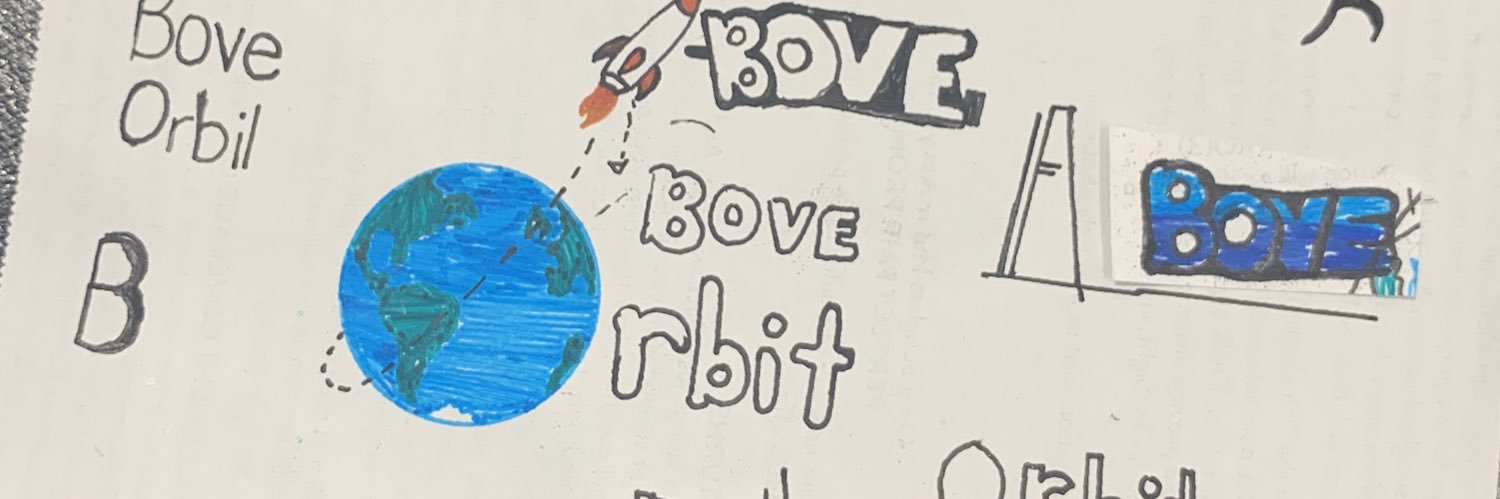 Bove
Orbil
B
BOVE
BOVE
rbit
A
BOVE
Orbit